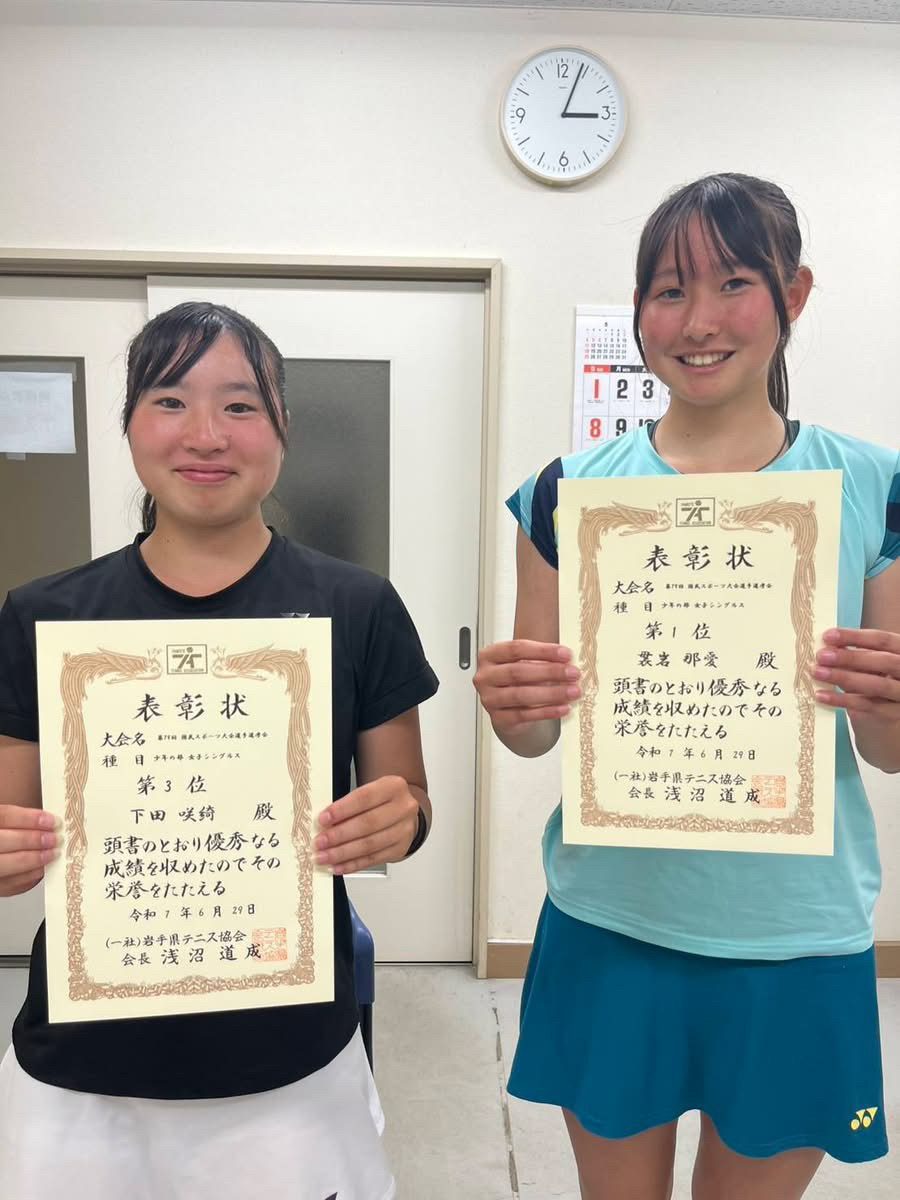 12
3
6
9
5
S SUN
月 MON
1 2 3
8 9 10
表彰状
大会名 第79回 国民スポーツ大会選手選考会
種目 少年の部 女子シングルス
第3位
下田 咲綺 殿
頭書のとおり優秀なる
成績を収めたのでその
栄誉をたたえる
令和 7 年 6 月 29 日
(一社)岩手県テニス協会
会長 浅沼 道成
表彰状
大会名 第79回 国民スポーツ大会選手選考会
種目 少年の部 女子シングルス
第1位
那愛 殿
頭書のとおり優秀なる
成績を収めたのでその
栄誉をたたえる
令和 7 年 6 月 29 日
(一社)岩手県テニス協会
会長 浅沼 道成